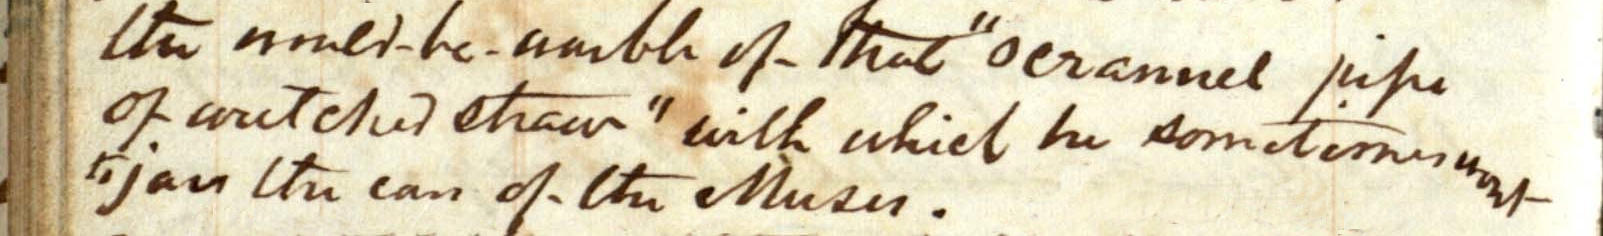 the would-be-warble of that "scrannel pipe
of wretched straw" with which he sometimes wont
to jar the ears of the Muses.